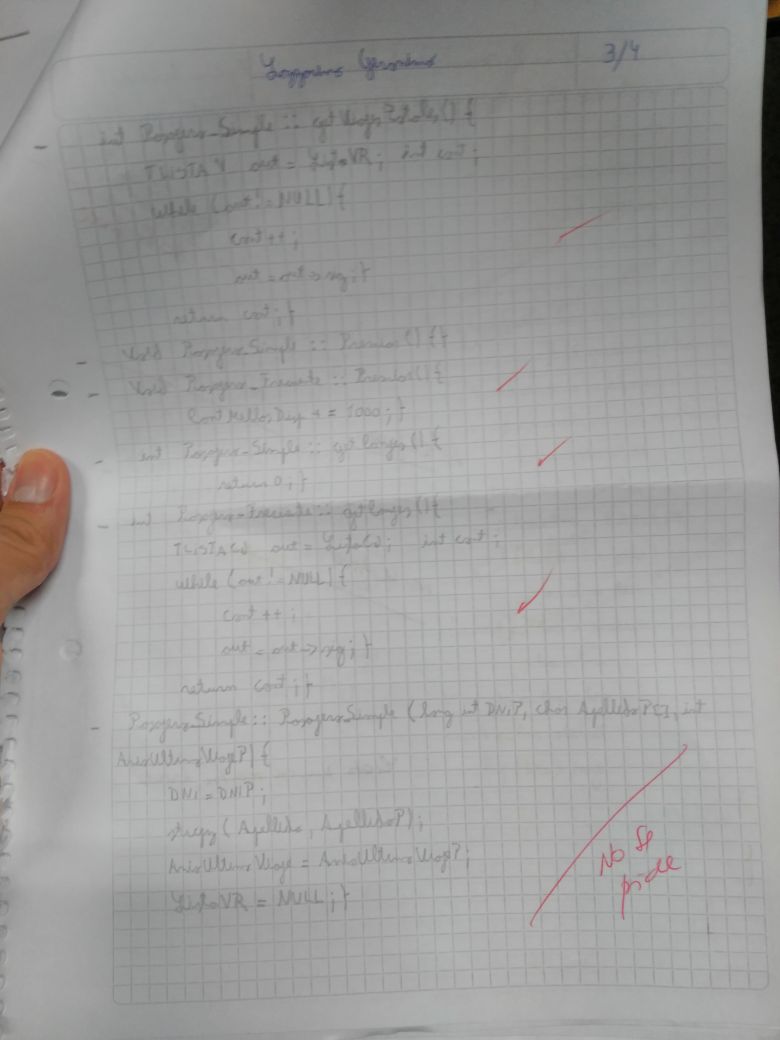 3/4
- int Pasajero_Simple :: getViajesTotales() {
TLISTAV aut = ListaVR; int cont;
while (aut != NULL) {
cont ++;
aut = aut->sig; }
return cont; }
- Void Pasajero_Simple :: Premios() { }
- Void Pasajero_Frecuente :: Premios() {
Cant MillasDisp += 1000; }
- int Pasajero_Simple :: getCanjes() {
return 0; }
- int Pasajero_Frecuente :: getCanjes() {
TLISTAC aut = ListaC; int cont;
while (aut != NULL) {
cont ++;
aut = aut->sig; }
return cont; }
- Pasajero_Simple :: Pasajero_Simple (long int DNIP, char ApellidoP[], int
AnioUltimoViajeP) {
DNI = DNIP;
strcpy ( Apellido, ApellidoP);
AnioUltimoViaje = AnioUltimoViajeP;
ListaVR = NULL; }
No se
pide